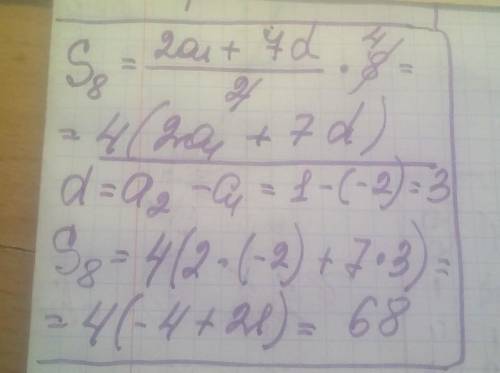 S₈ = (2a₁ + 7d)/2 · 8⁴ =
= 4(2a₁ + 7d)
d = a₂ - a₁ = 1 - (-2) = 3
S₈ = 4(2·(-2) + 7·3) =
= 4(-4 + 21) = 68